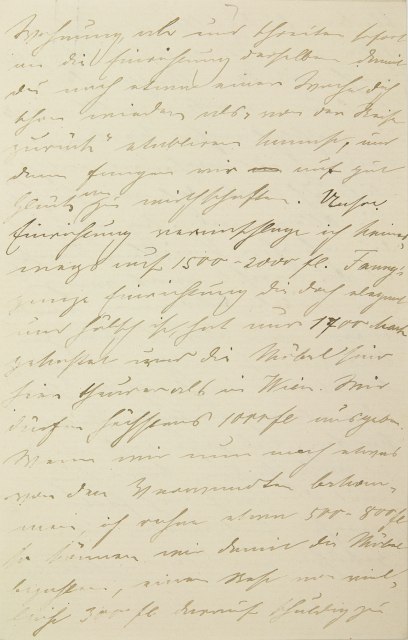 Wohnung, alle und schreiten sofort
an die Einrichtung derselben damit
du nach etwa einer Woche dich
schon wieder als „von der Reise
zurück“ etabliren kannst, und
dann fangen wir an auf gut
Glück zu wirthschaften. Unsre
Einrichtung veranschlage ich keines-
wegs auf 1500–2000 fl. Fanny's
ganze Einrichtung die doch elegant
und hübsch ist, hat nur 1700 Mark
gekostet und die Möbel sind
hier theurer als in Wien. Wir
dürfen höchstens 1000 fl ausgeben.
Wenn wir nun noch etwas
von den Verwandten bekom-
men, ich rechne etwa 500–800 fl
so können wir damit die Möbel
bezahlen, einen Rest von viel-
leicht 300 fl darauf schuldig zu